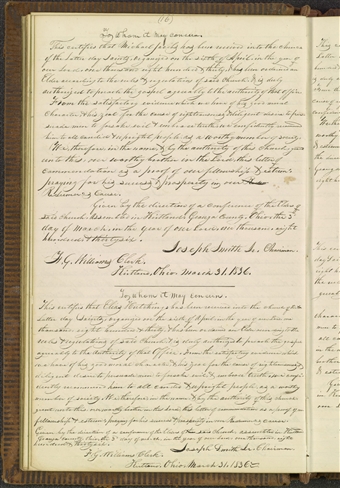 (16)
To whom it may concern.
This certifies that Michael has been received into the church
of the Latter day Saints, organized on the sixth of April in the year of
our Lord one thousand eight hundred & thirty & has been ordained an
Elder according to the rules & regulations of said church & is duly
authorized to preach the gospel agreeably to the authority of that office.
From the satisfactory evidence which we have of his good moral
character & his zeal for the cause of righteousness & diligent desire to persuade
men to forsake evil & embrace truth we confidently recommend
him to all candid & upright people as a worthy member of society.
We therefore in the name & by the authority of this church grant
unto this our worthy brother in the Lord this letter of
commendation as a proof of our fellowship & esteem
praying for his success & prosperity in our
Redeemer's Cause.
Given by the direction of a conference of the Elders of
said church assembled in Kirtland Geauga County, Ohio the 3d
day of March in the year of our Lord one thousand eight
hundred & thirty six.
Joseph Smith Jr. Chairman
F. G. Williams Clerk.
Kirtland, Ohio. March 31, 1836.
To whom it may concern.
This certifies that Elias Hutchings has been received into the church of the
Latter day Saints, organized on the sixth of April in the year of our Lord one
thousand eight hundred & thirty & has been ordained an Elder according to the
rules & regulations of said church & is duly authorized to preach the gospel
agreeably to the authority of that Office. From the satisfactory evidence which
we have of his good moral character & his zeal for the cause of righteousness &
diligent desire to persuade men to forsake evil & embrace truth we confidently
recommend him to all candid & upright people as a worthy
member of society. We therefore in the name & by the authority of this church
grant unto this our worthy brother in the Lord this letter of commendation as a proof of our
fellowship & esteem praying for his success & prosperity in our Redeemer's cause.
Given by the direction of a conference of the Elders of said church assembled in Kirtland
Geauga County Ohio the 3d day of March in the year of our Lord one thousand eight
hundred & thirty six.
Joseph Smith Jr. Chairman
F. G. Williams Clerk.
Kirtland, Ohio. March 31, 1836